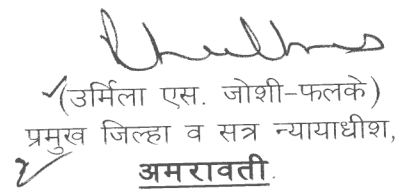 (उर्मिला एस. जोशी-फलके)
प्रमुख जिल्हा व सत्र न्यायाधीश,
अमरावती.